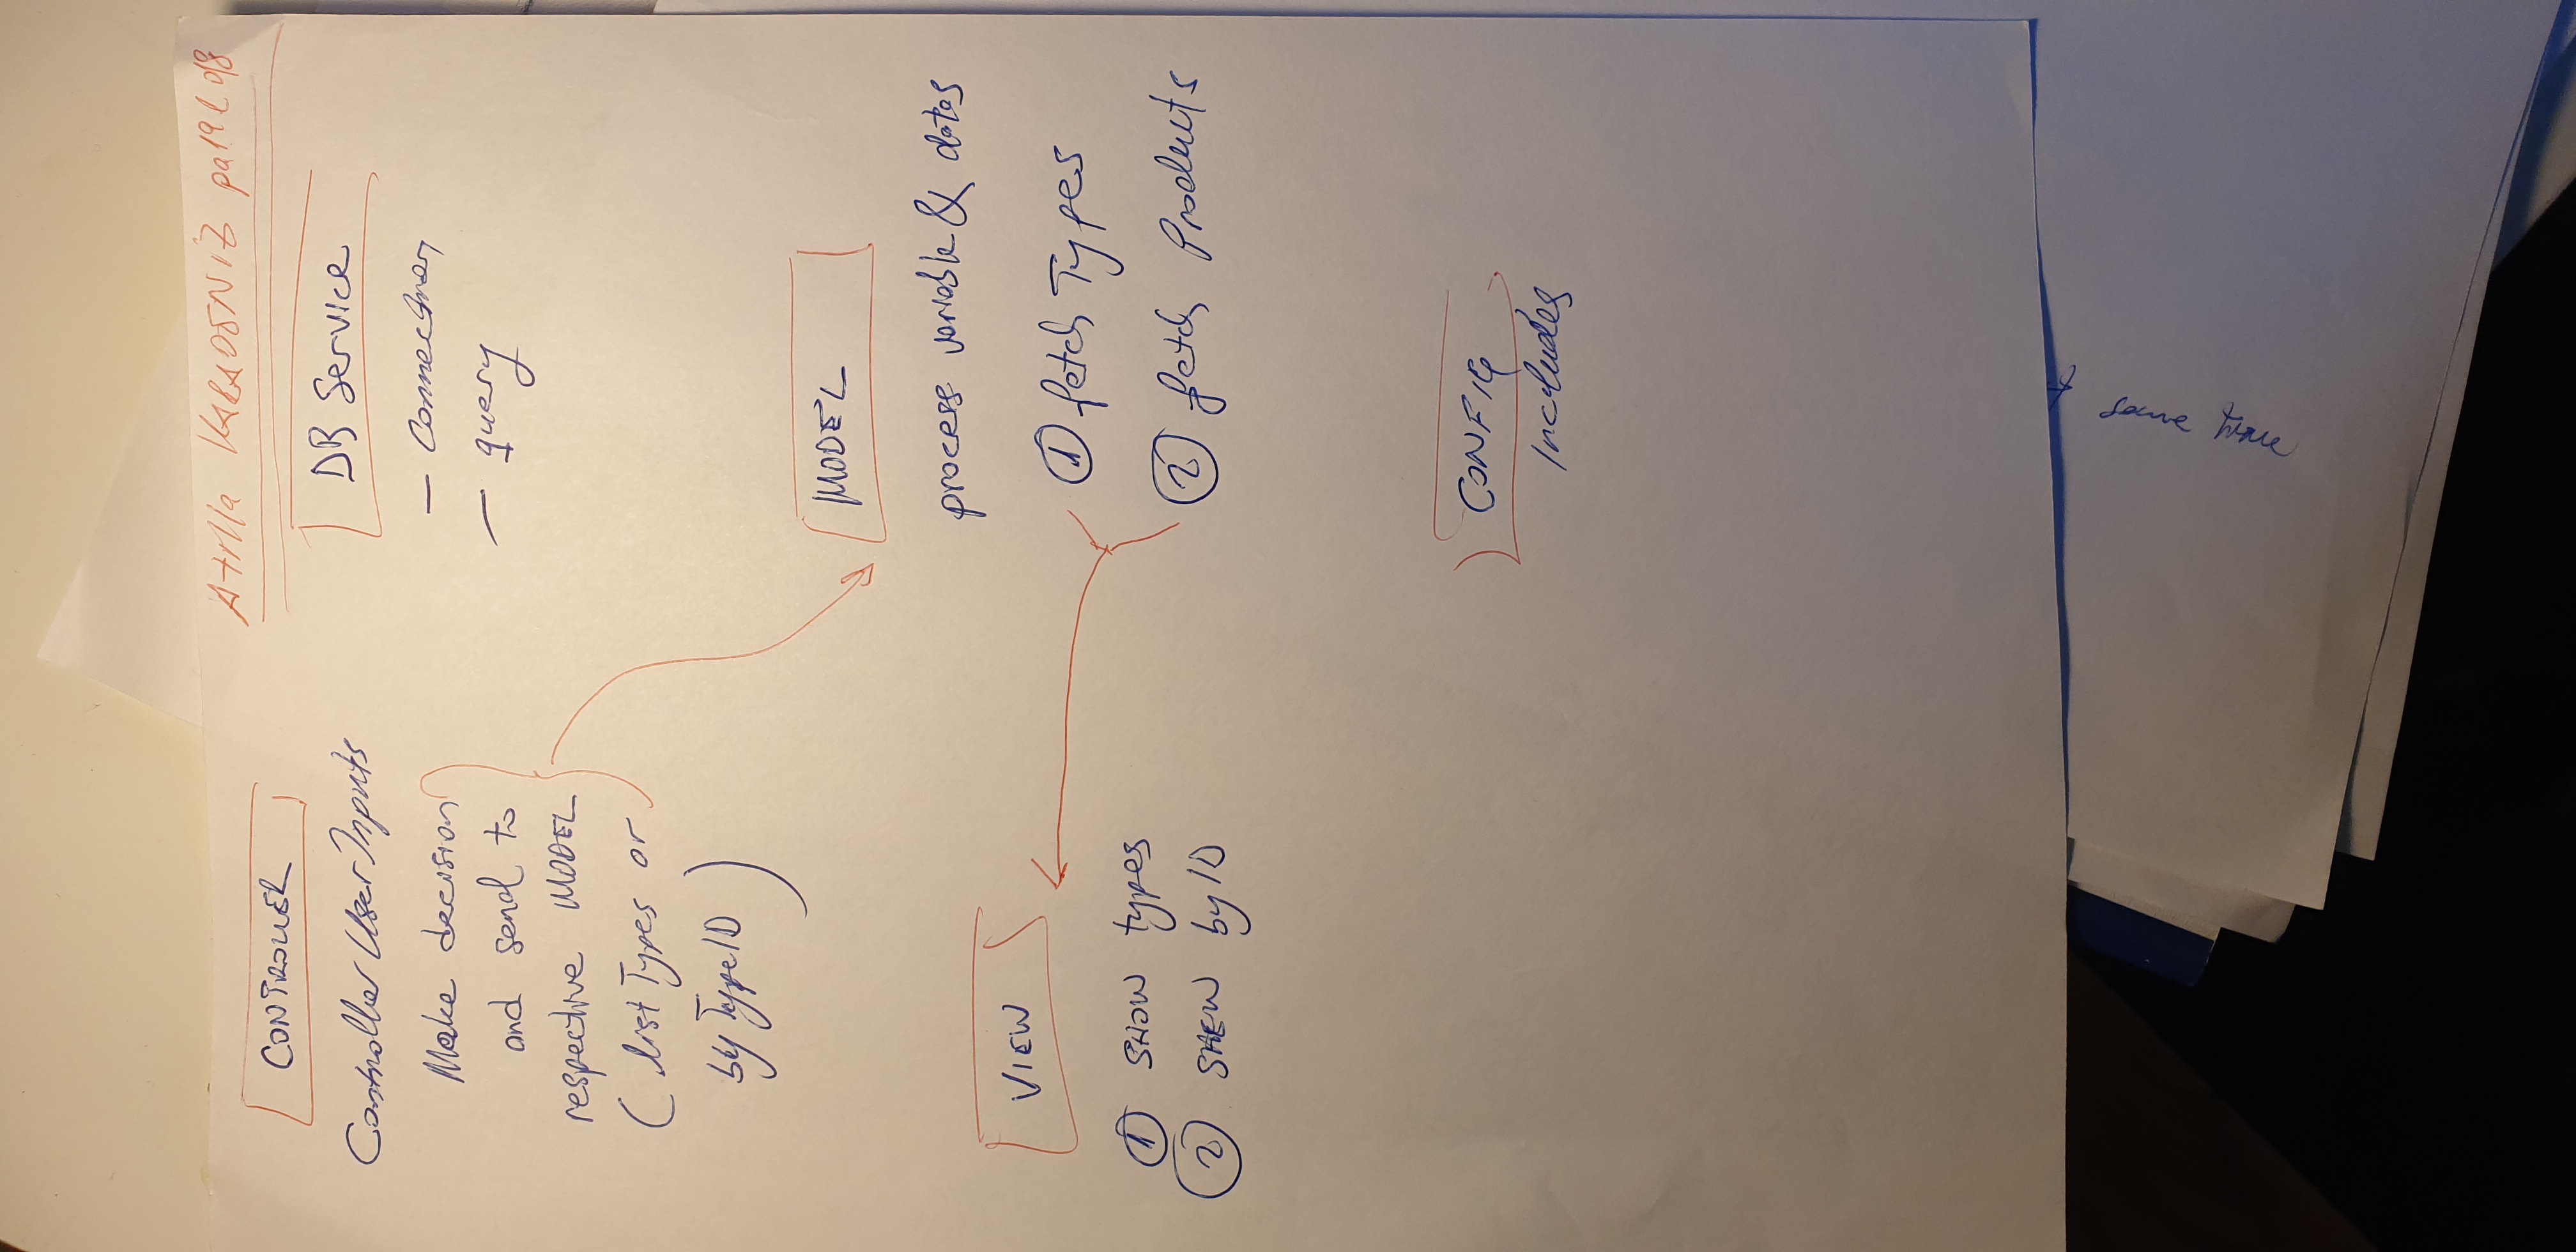 Atilla KARADENİZ
CONTROLLER
Controller User Inputs
Make decision
and send to
respective MODEL
( list Types or
by TypeID )
DB Service
— Connection
— query
MODEL
process variable & datas
① fetch Types
② fetch Products
VIEW
① SHOW types
② SHOW by ID
CONFIG
Includes
same time